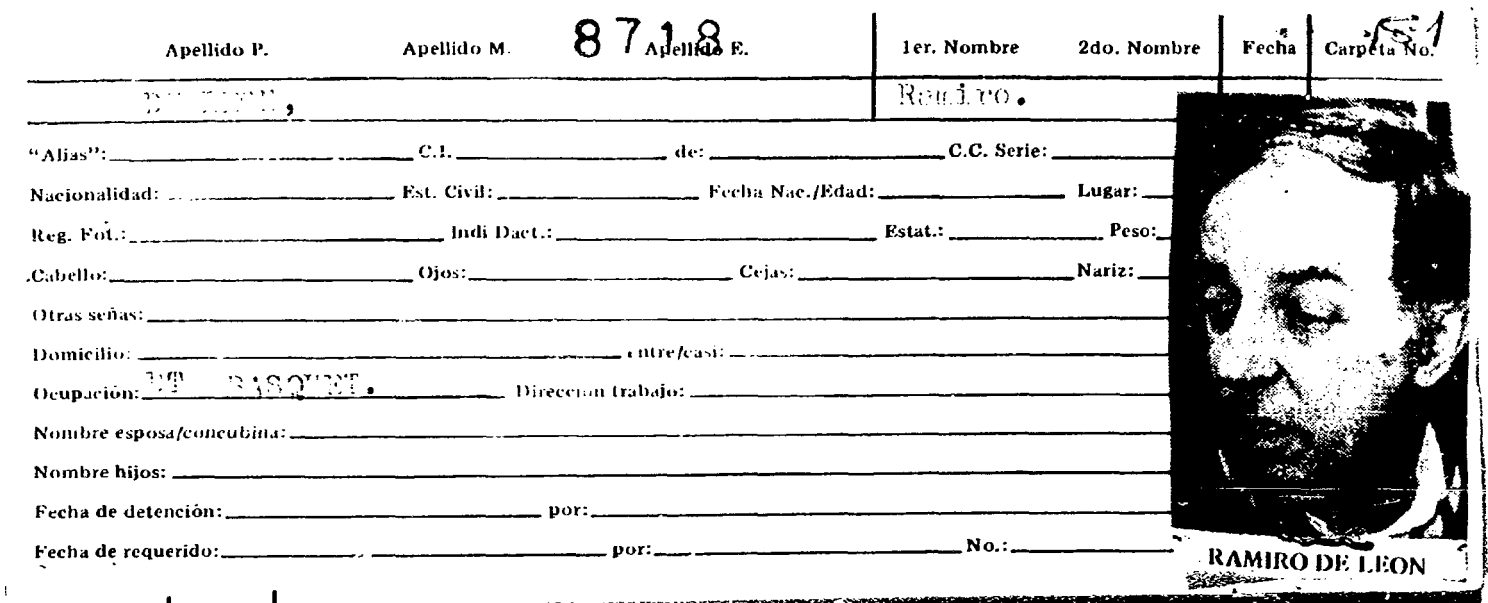 8718
Apellido P. Apellido M. Apellido E. 1er. Nombre 2do. Nombre Fecha Carpeta No.
DE LEON, Ramiro.
"Alias": C.I. de: C.C. Serie:
Nacionalidad: Est. Civil: Fecha Nac./Edad: Lugar:
Reg. Fot.: Indi Dact.: Estat.: Peso:
Cabello: Ojos: Cejas: Nariz:
Otras señas:
Domicilio: entre/casi:
Ocupación: BASQUET. Direccion trabajo:
Nombre esposa/concubina:
Nombre hijos:
Fecha de detención: por:
Fecha de requerido: por: No.:
RAMIRO DE LEON